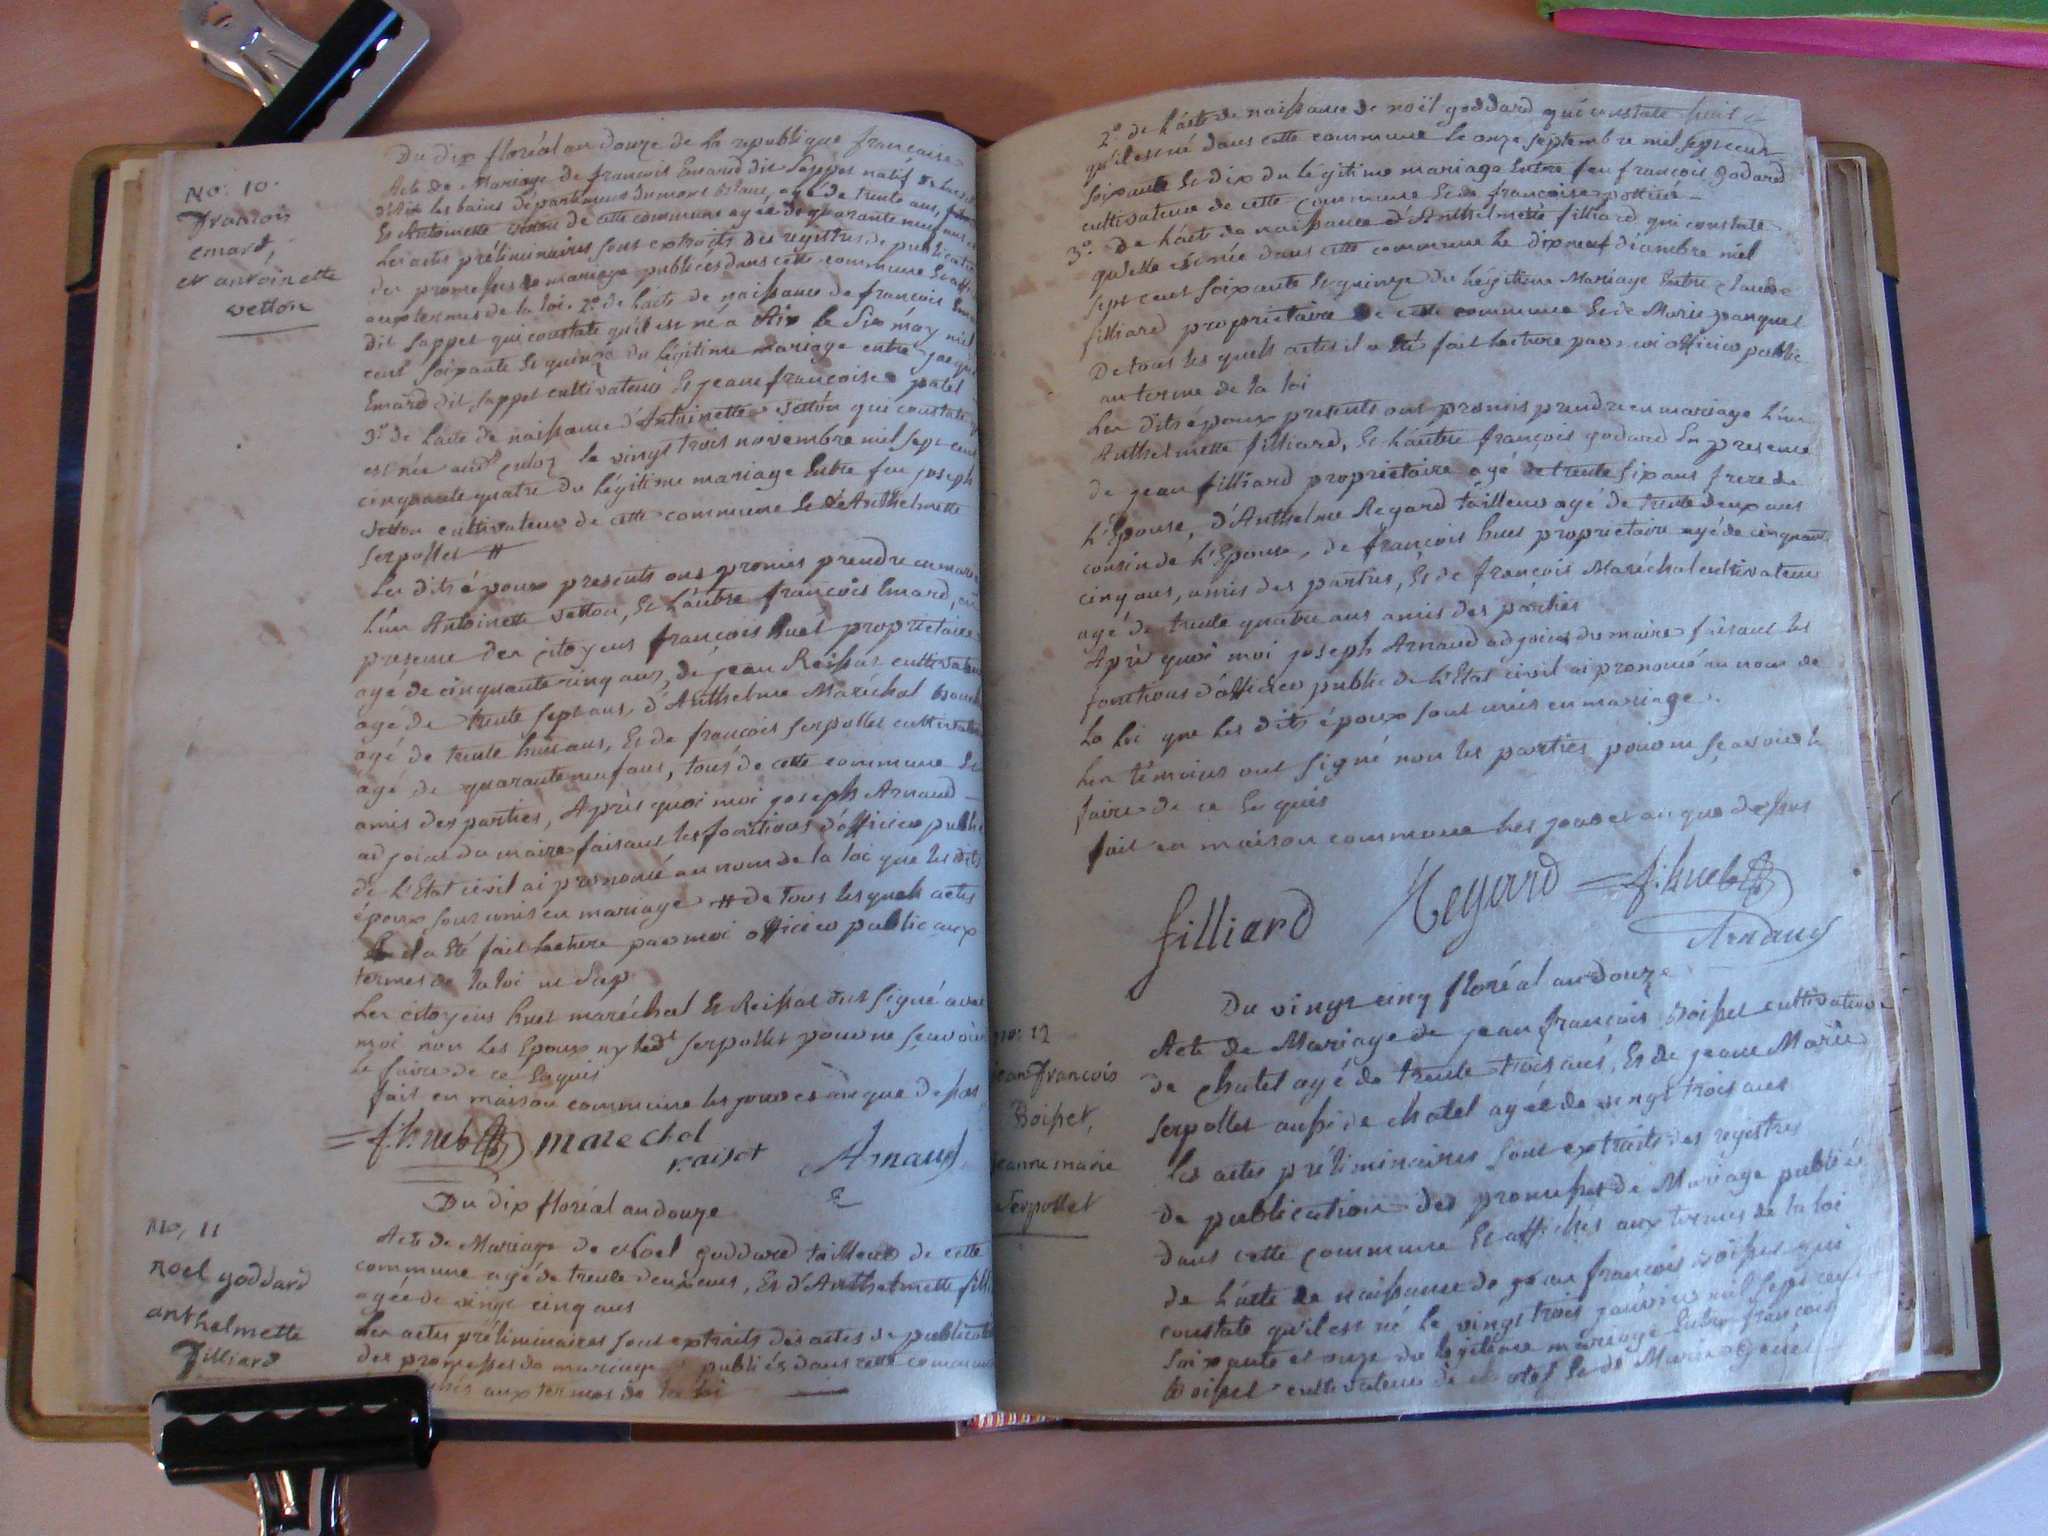 No: 10.
François
emard,
et antoinette
vetton
Du dix floréal an douze de la republique francaise
Acte de Mariage de francois Emard dit Lappet natif de
d'Aix les bains departement du mont blanc, agé de trente ans,
Et Antoinette vetton de cette commune agée de quarante neuf ans
Les actes préliminaires sont extraits des registres de publication
des promesses de mariage publiées dans cette commune Et
aux termes de la loi. 2º. de l'acte de naissance de françois
dit Lappet qui constate qu'il est né a Aix le Six may mil
cent soixante Et quinze du légitime mariage entre
Emard dit Lappet cultivateur Et jeanne françoise patel
3º. de l'acte de naissance d'Antoinette vetton qui constate
est née le vingt trois novembre mil sept cent
cinquante quatre du légitime mariage Entre feu joseph
vetton cultivateur de cette commune Et d'Anthelmette
serpollet #
Les dits époux presents ont promis prendre en
l'un Antoinette vetton, Et l'autre françois Emard, en
presence des citoyens françois huet proprietaire
agé de cinquante cinq ans, de jean Reissat
agé de trente sept ans, d'Anthelme Maréchal
agé de trente huit ans, Et de françois serpollet
agé de quarante neuf ans, tous de cette commune Et
amis des parties, Après quoi moi joseph Arnaud
adjoint du maire faisant les fonctions d'officier public
de l'Etat civil ai prononcé au nom de la loi que les dits
époux sont unis en mariage # de tous les quels actes
il a Eté fait lecture par moi officier public aux
termes de la loi
Les citoyens huet maréchal Et Reissat ont signé avec
moi non les Epoux ny led.t serpollet pour ne sçavoir
le faire de ce Enquis
fait en maison commune les jour et an que dessus
f. huet marechal
raisat Arnaud
No, 11
noel goddard
anthelmette
filliard
Du dix floréal an douze
Acte de Mariage de Noel goddard tailleur de cette
commune agé de trente deux ans, Et d'Anthelmette
agée de vingt cinq ans
Les actes préliminaires sont extraits des actes de
des promesses de mariage publiées dans cette
aux termes de la loi
2º. de l'acte de naissance de noël goddard qui constate
qu'il est né dans cette commune le onze septembre mil sept cent
soixante Et dix du légitime mariage Entre feu françois godard
cultivateur de cette commune Et de françoise
3º. De l'acte de naissance d'Anthelmette filliard qui constate
qu'elle est née dans cette commune le dix neuf décembre mil
sept cent soixante Et quinze du légitime Mariage Entre Claude
filliard proprietaire de cette commune Et de Marie
De tous les quels actes il a Eté fait lecture par moi officier public
au terme de la loi
Les dits époux presents ont promis prendre en mariage l'un
Anthelmette filliard, Et l'autre françois godard En presence
de jean filliard proprietaire agé de trente six ans frere de
L'Epouse, d'Anthelme Regard tailleur agé de trente deux ans
cousin de l'Epouse, de françois huet proprietaire agé de cinquante
cinq ans, amis des parties, Et de françois Maréchal cultivateur
agé de trente quatre ans amis des parties
Après quoi moi joseph Arnaud adjoint du maire faisant les
fonctions d'officier public de l'Etat civil ai prononcé au nom de
La loi que les dits époux sont unis en mariage.
Les témoins ont signé non les parties pour ne sçavoir le
faire de ce Enquis
fait en maison commune les jour et an que dessus
filliard Regard f. huet
Arnaud
no: 12
jean françois
Boisset,
jeanne marie
Serpollet
Du vingt cinq floréal an douze
Acte de Mariage de jean françois Boisset cultivateur
de chatel agé de trente trois ans, Et de jeanne Marie
serpollet aussi de chatel agée de vingt trois ans
Les actes préliminaires sont extraits des registres
de publication des promesses de Mariage publiés
dans cette commune Et affichés aux termes de la loi
de l'acte de naissance de jean françois Boisset qui
constate qu'il est né le vingt trois janvier mil sept cent
soixante et onze du légitime mariage Entre françois
Boisset cultivateur de chatel Et de Marie